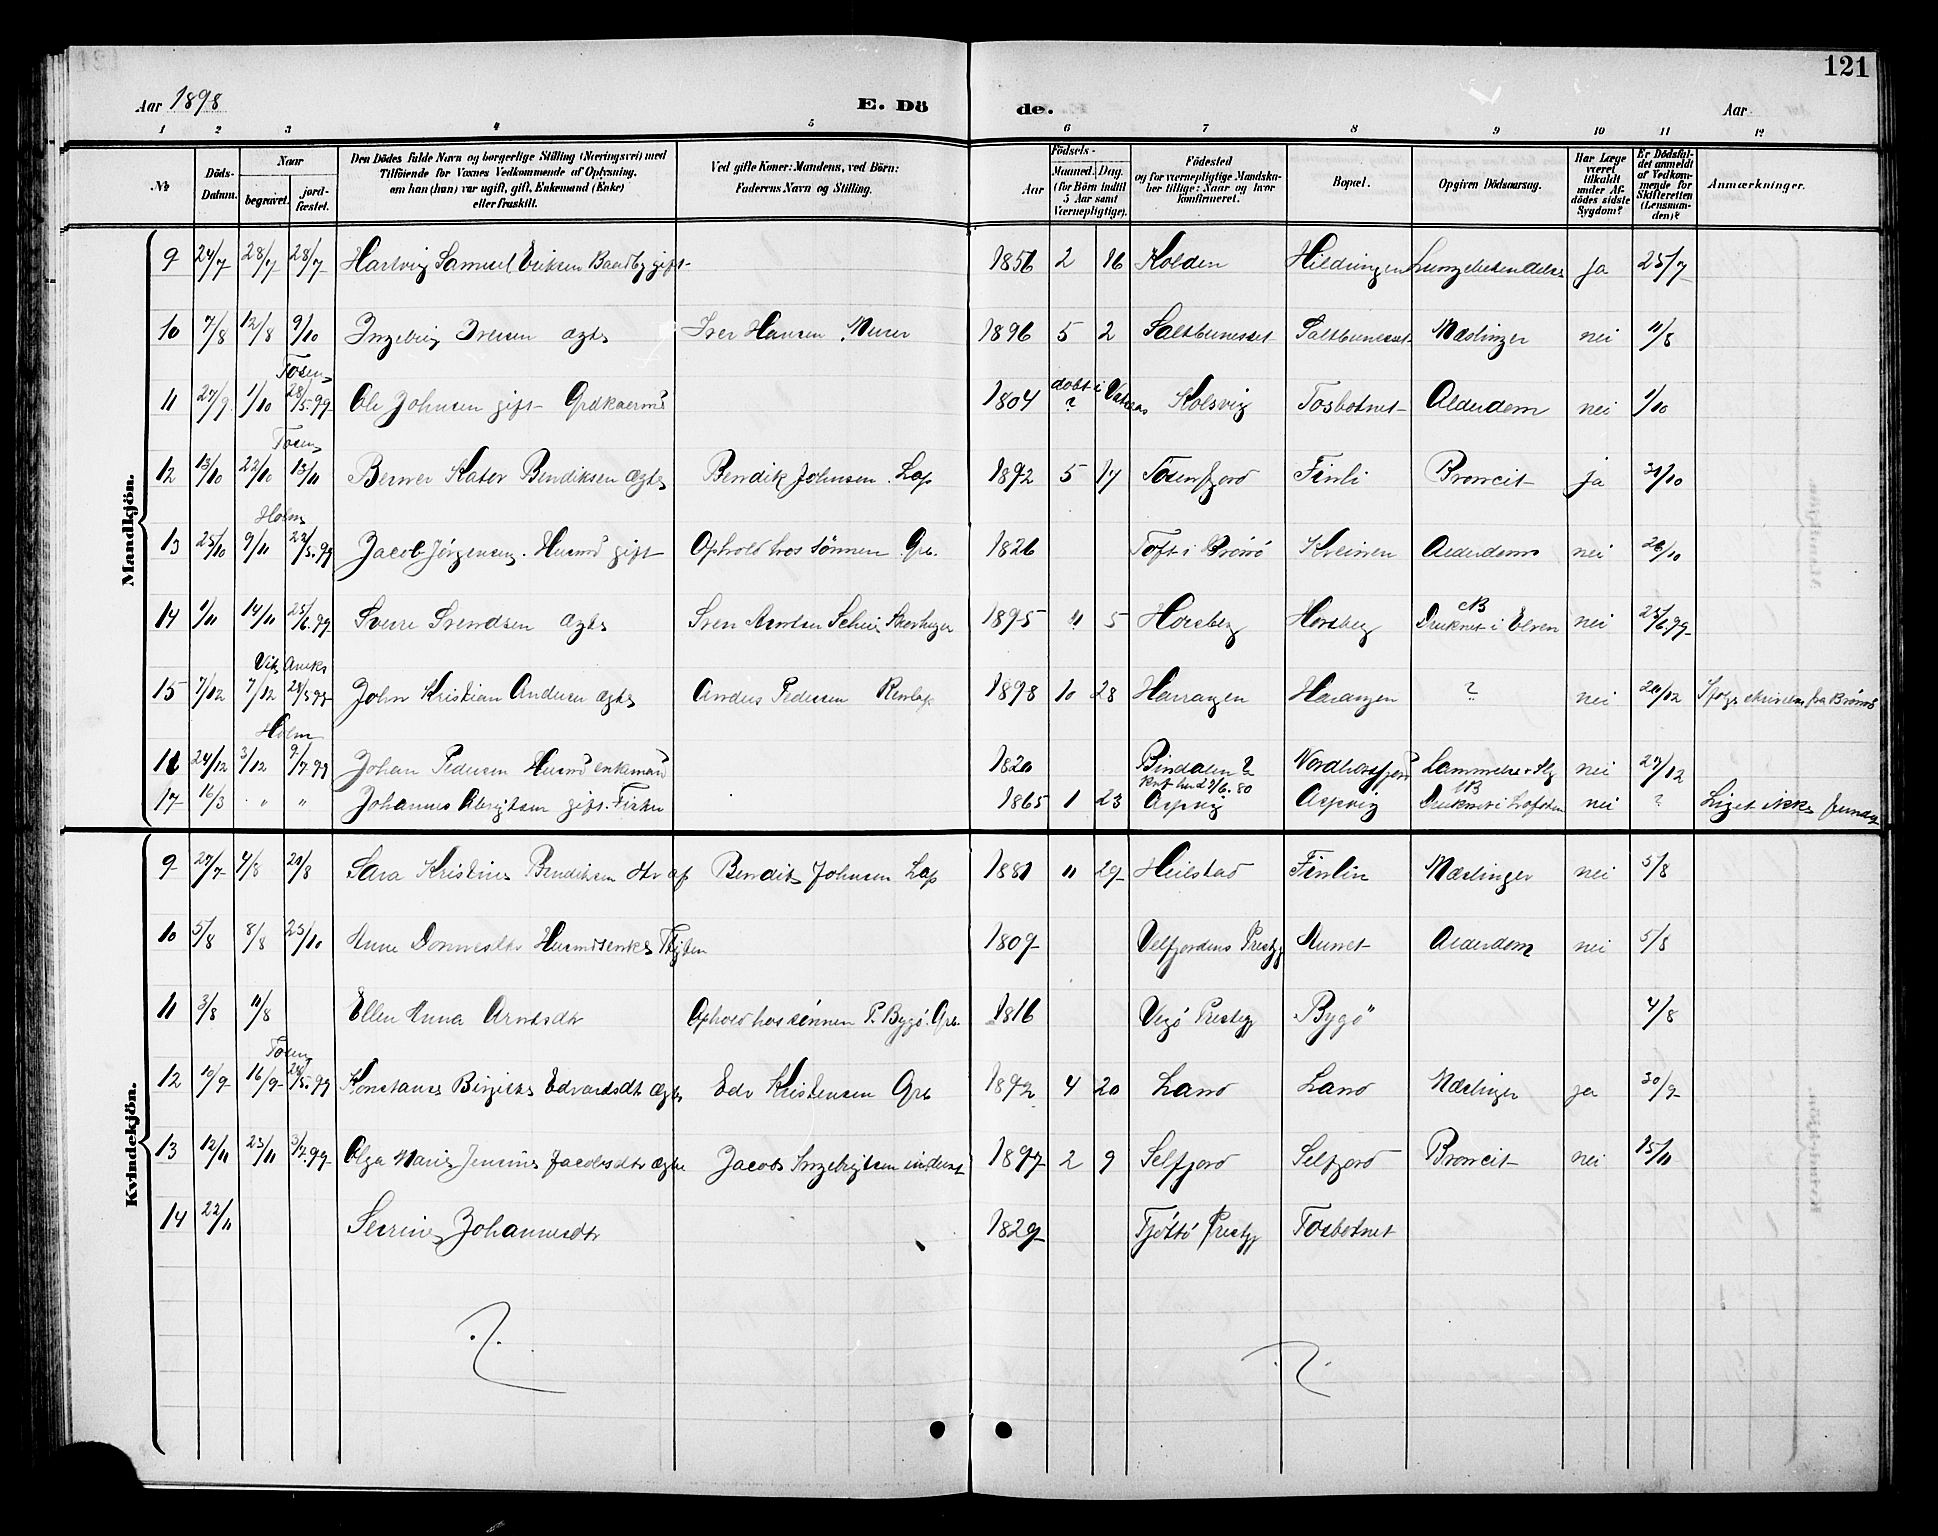 121
Aar 1898 E. Dö de. Aar
1 2 3 4 5 6 7 8 9 10 11 12
No Döds-Datum. Naar begravet. jord-fæstet. Den Dödes fulde Navn og borgerlige Stilling (Næringsvei) med Tilföiende for Voxnes Vedkommende af Oplysning, om han (hun) var ugift, gift, Enkemand (Enke) eller fraskilt. Ved gifte Koner: Mandens, ved Börn: Faderens Navn og Stilling. Aar Födsels- Maaned. Dag. (for Börn indtil 5 Aar samt Værnepligtige). Födested og for værnepligtige Mandska-ber tillige: Naar og hvor konfirmeret. Bopæl. Opgiven Dödsaarsag. Har Læge været tilkaldt under Af-dödes sidste Sygdom? Er Dödsfal-det anmeldt af Vedkom-mende for Skifteretten (Lensman-den)? Anmærkninger.
Mandkjön.
9 24/7 28/7 28/7 Hartvig Samuel Eriksen gift 1856 2 16 Kolden Hildringen Lungebetændelse ja 25/7
10 7/8 12/8 9/10 Ingebrig Iversen ægte Iver Hansen Murer 1896 5 2 Saltbunesset Saltbunesset Mæslinger nei 11/8
Tosen
11 27/9 1/10 28/5.99 Ole Johnsen gift 1804 døbt i ? Kolsvig Tosbotnet Alderdom nei 1/10
Tosen
12 13/10 22/10 13/11 Berner Kator Bendiksen ægte Bendik Johnsen Lap 1892 5 17 Tosenfjord Finli Broncit ja 31/10
Holm
13 25/10 9/11 22/5.99 Jacob Jørgensen. Husmd gift Ophold hos sønnen Grb. 1826 Toft i Brønø Kreinen Alderdom nei 26/10
14 1/11 14/11 25/6.99 Sverre Svendsen ægte Sven Arntsen 1895 " 5 Horsberg Horsberg Druknet i Elven nei 25/6.99
Vik
15 7/12 7/12 28/5.99 John Kristian Andersen ægte Anders Pedersen 1898 10 28 Harangen Harangen ? nei 20/12
Holm
16 24/12 3/12 9/7.99 Johan Pedersen Husmd enkemand 1820 Bindalen ? nei 27/12
17 16/3 " " Johannes gift. Fisker 1865 1 23 Konf. herd 7/6.80 Aspvig Aspvig Druknet i Lofoten nei ? Liget ikke
Kvindekjön.
9 27/7 4/8 21/8 Sara Kristine Bendiksen dtr af Bendik Johnsen Lap 1881 " 29 Heilstad Finlin Mæslinger nei 5/8
10 5/8 8/8 23/10 Anne Husmdsenke 1809 Velfjordens Prestgj Alderdom nei 5/8
11 3/8 11/8 Ellen Anna Arntsdtr Ophold hos sønnen P. Bygø. Grb. 1816 Vegø Prestegj Bygø 4/8
Tosen
12 10/9 16/9 28/5.99 Konstance Birgitte Edvardsdtr ægte Edv Kristensen Grb 1892 4 20 Land Land Mæslinger ja 30/9
13 12/11 23/11 3/7.99 Olga Marie Jensine Jacobsdtr ægte Jacob Ingebrigtsen inderst 1897 2 9 Selfjord Selfjord Broncit nei 15/11
14 22/11 Serine Johannesdtr 1829 Tjøttø Prestgj Tosbotnet